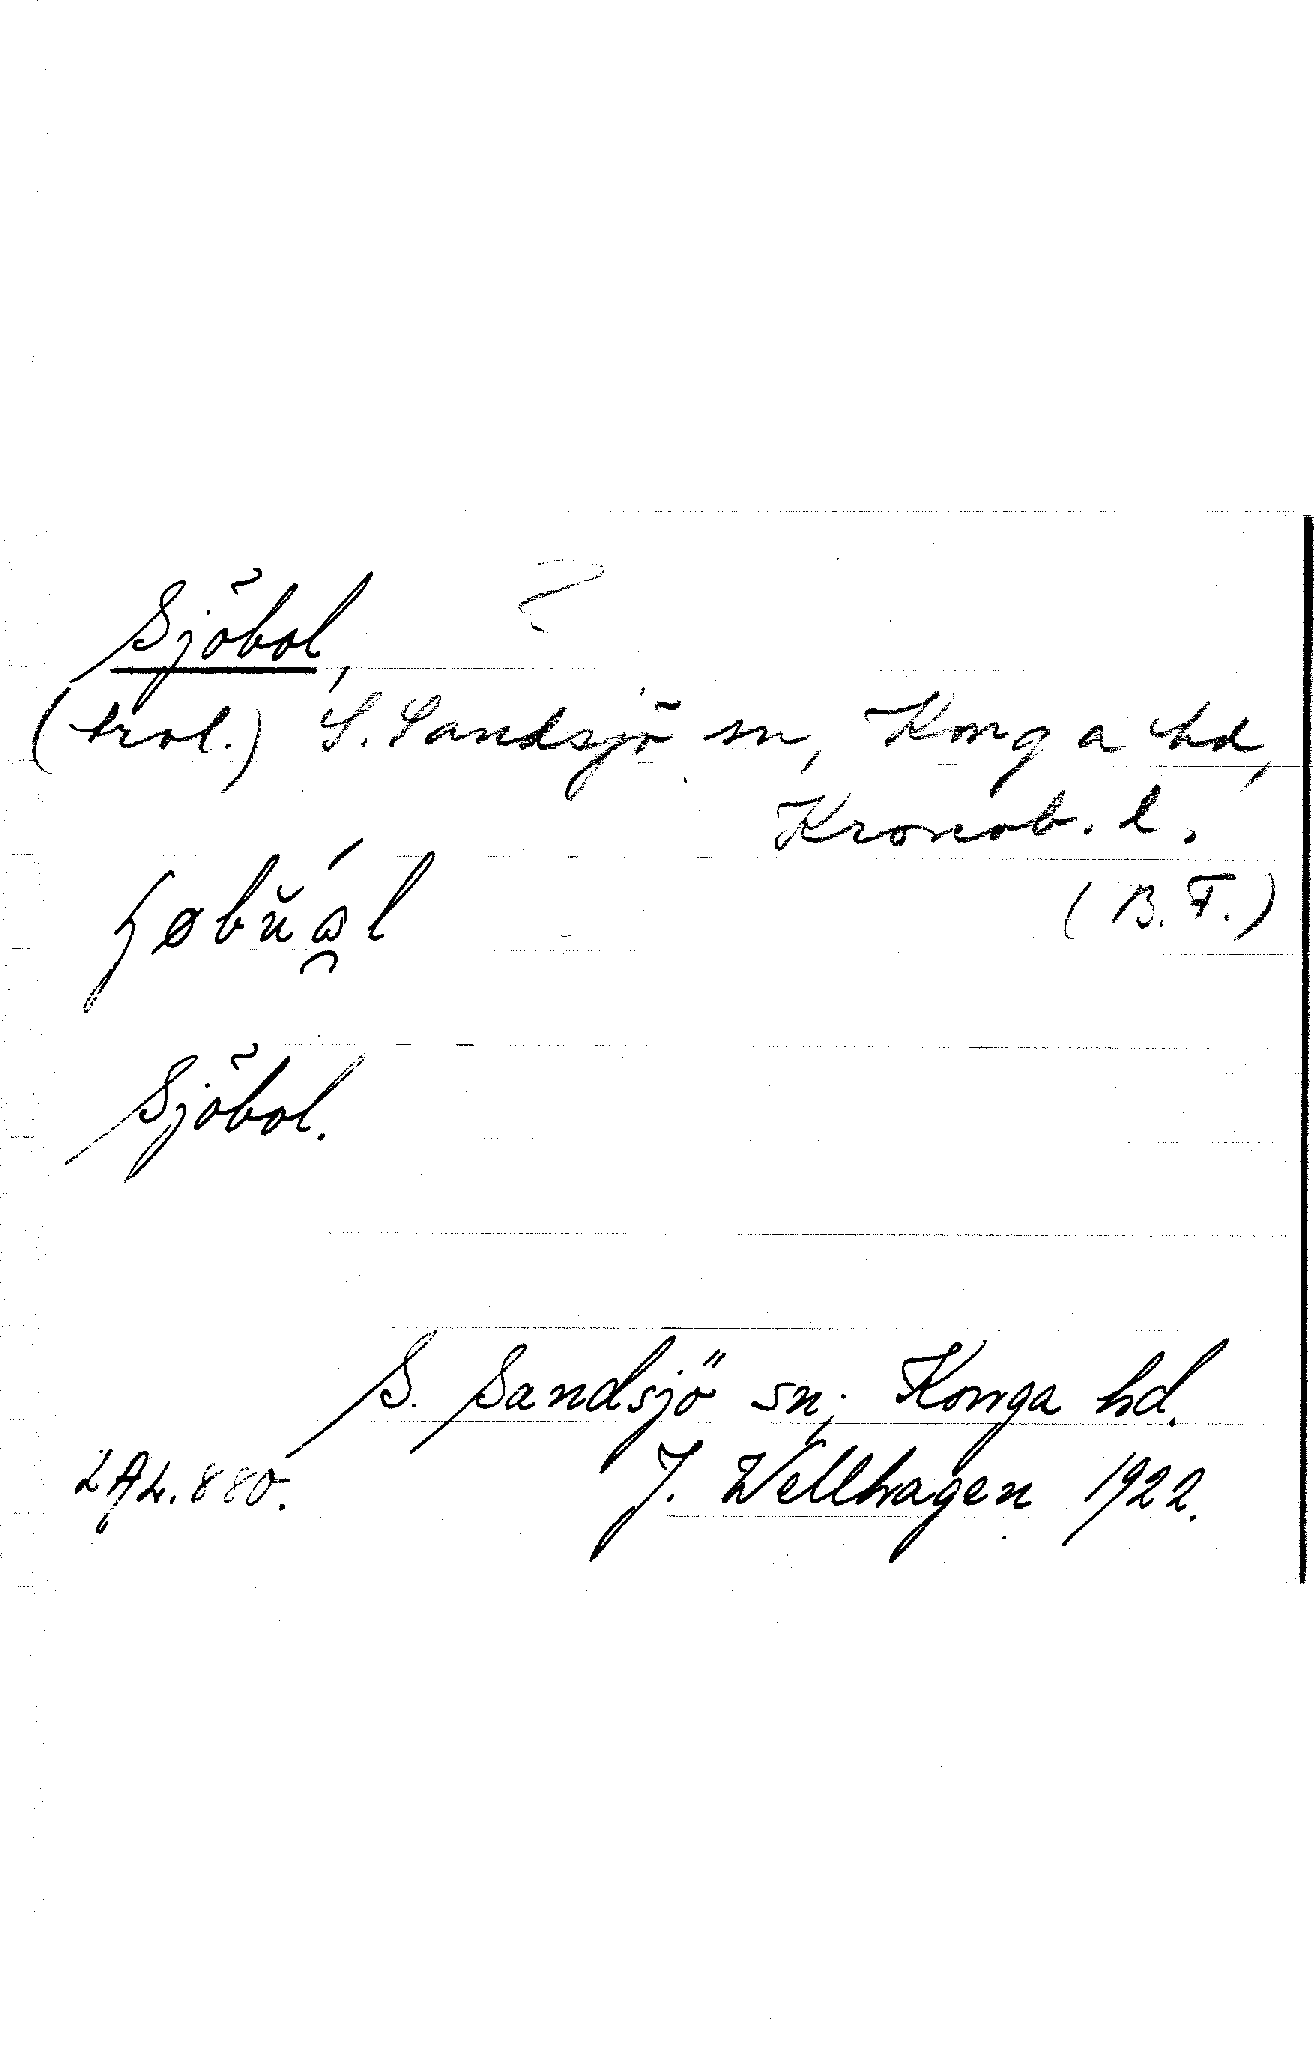 Sjöbol,
(trol.) S. Sandsjö sn, Konga hd,
Kronob. l.
(B.F.)
Sjöbol.
S. Sandsjö sn; Konga hd.
J. Wellhagen 1922.